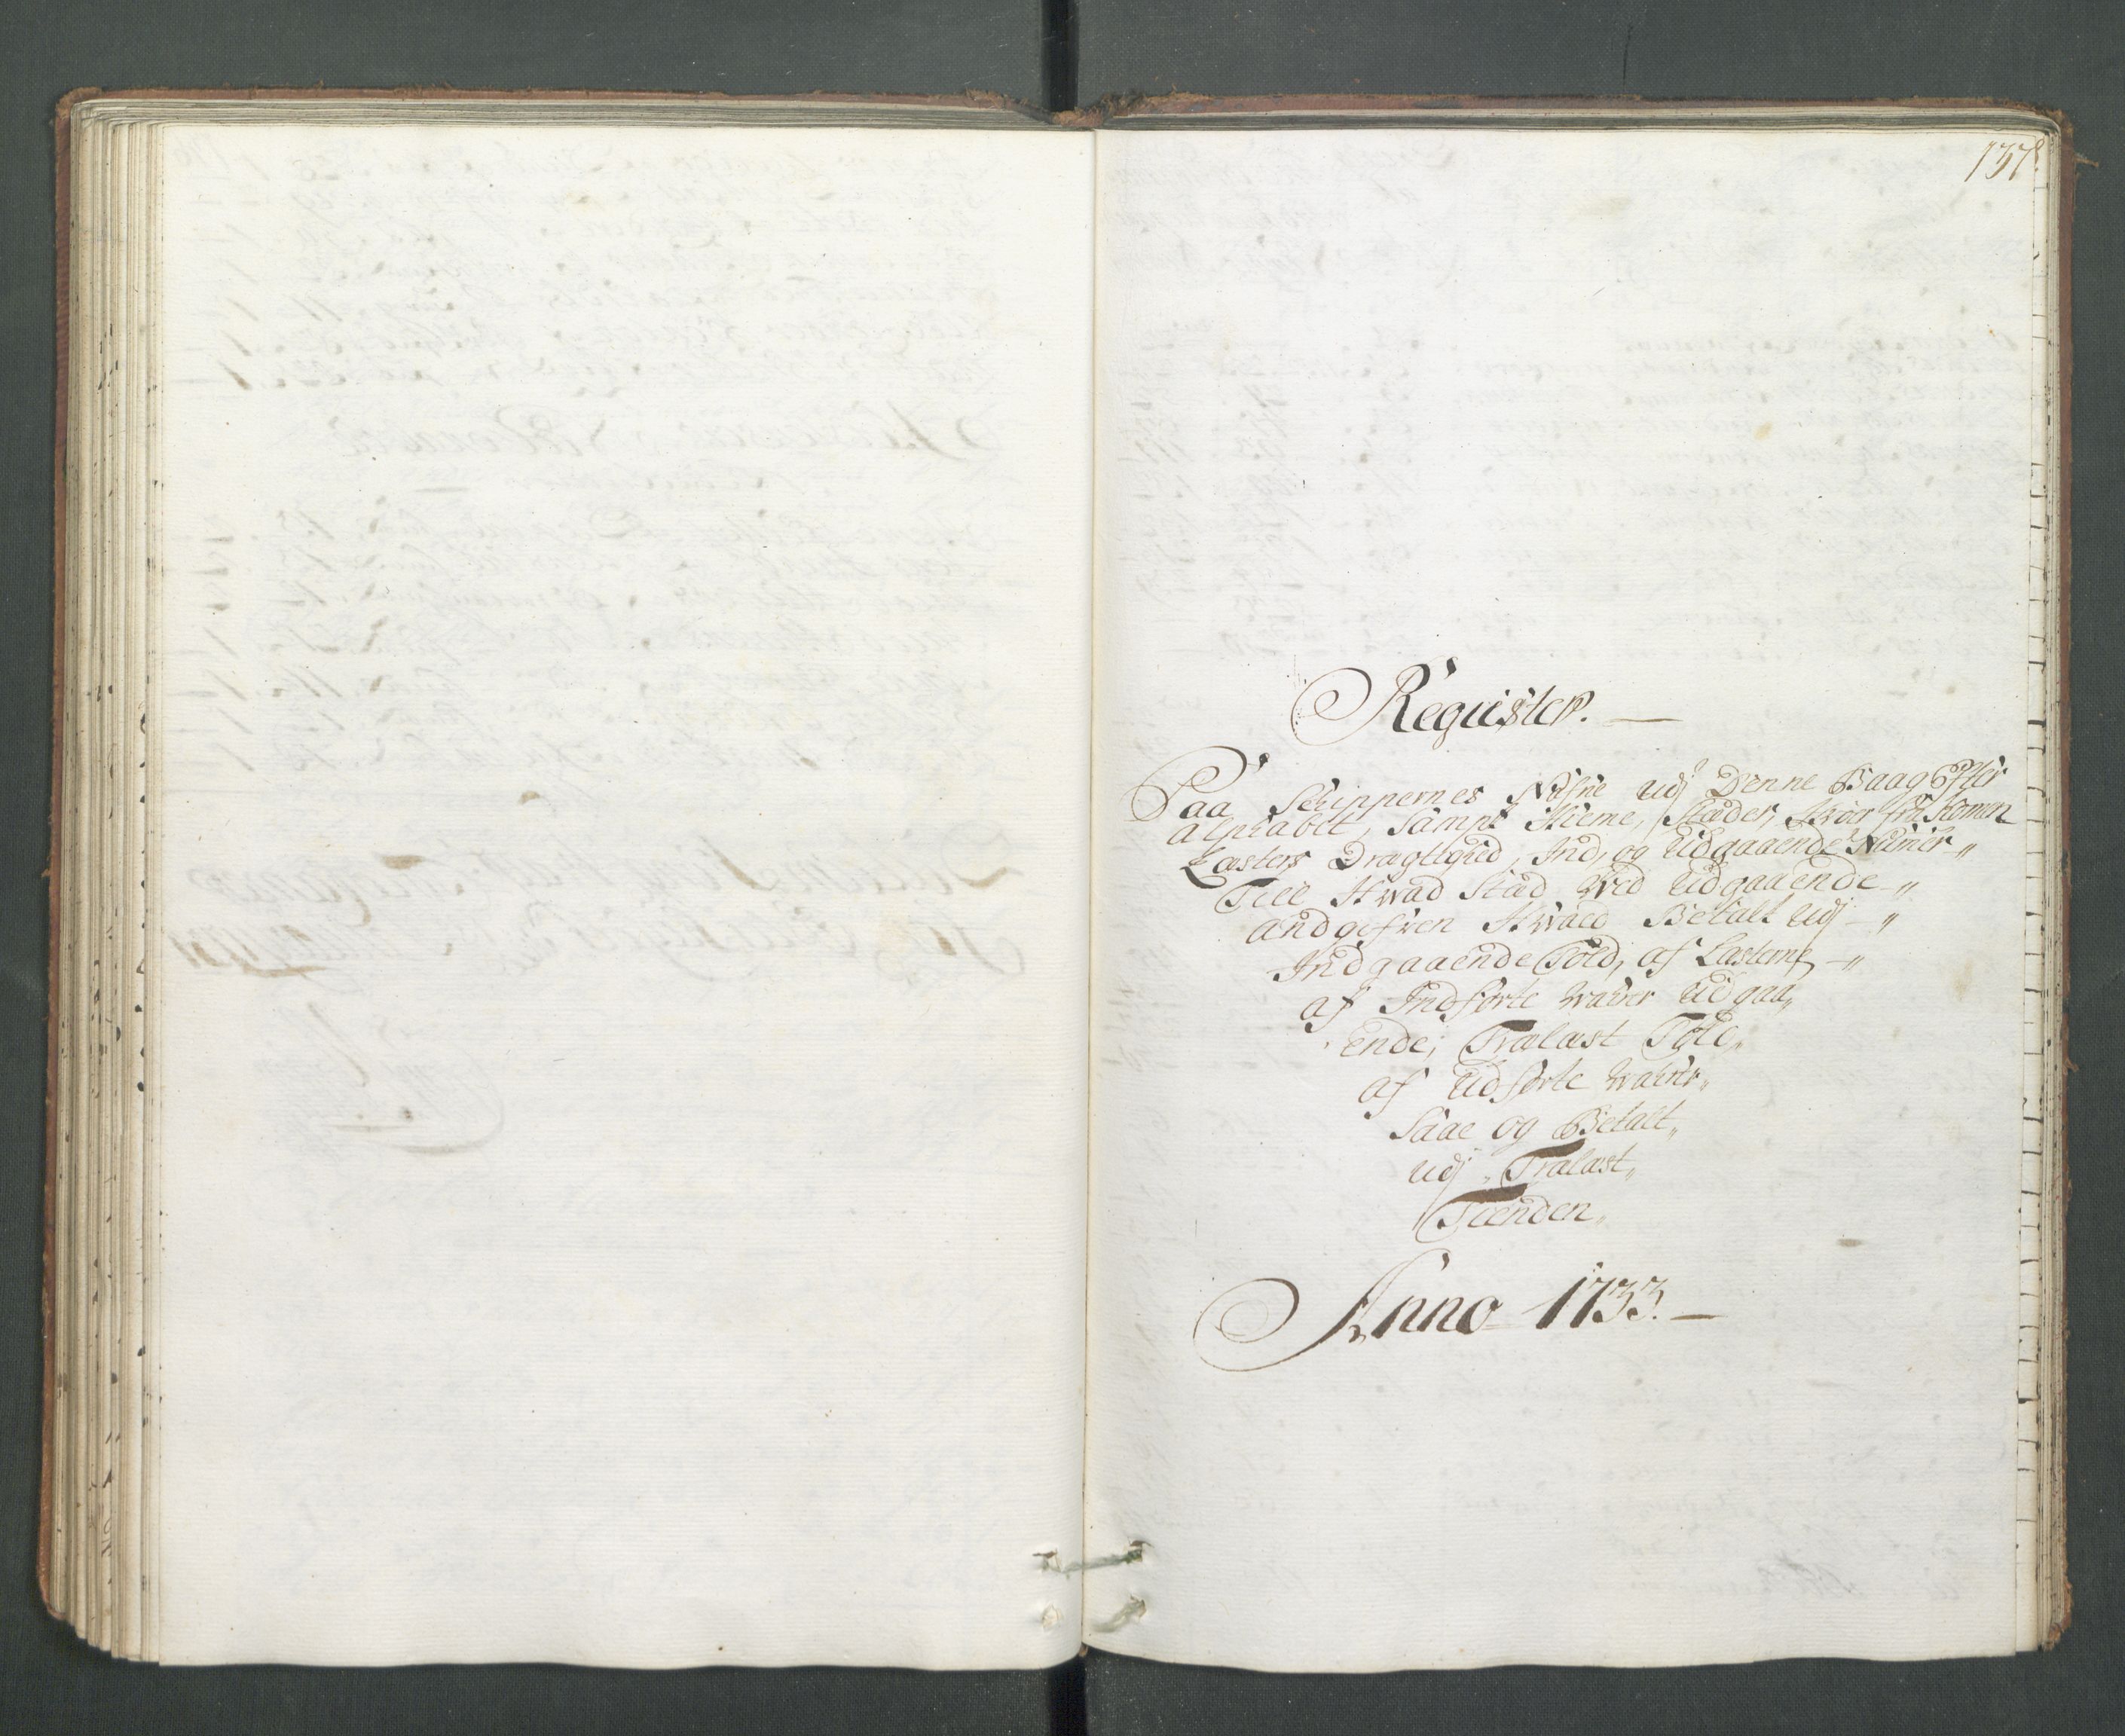 137
Register.
Paa Schippernes Nafne udj Denne Baag Efter
alphabet, sampt Hieme, Stæder, hvor fra komen
Læsters Drægtighed, Ind, og Udgaaende Numer „
Till Hwad Stæd Wed Udgaaende „
andgifven Hwæd Betalt udj „
Indgaaende Told, af Lasterne, „
af Indførte Wahrer Udgaa„
ende, Trælæst Told„
af Udførte Wahrer„
saae og Betalt„
udj „ Trælæst„
Tienden„
Anno 1733.